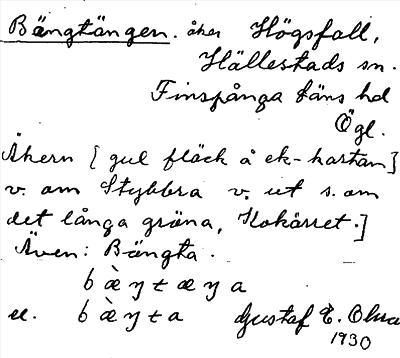 Bängtängen. åker Högsfall,
Hällestads sn.
Finspånga läns hd
Ögl.
Åkern [gul fläck å ek-kartan]
v. om Stybbra v. ut s. om
det långa gröna, Slokärret.]
Även: Bängta.
b æ̀ ŋ t æ ŋ a
el. b æ̀ ŋ t a Gustaf E. Olson
1930